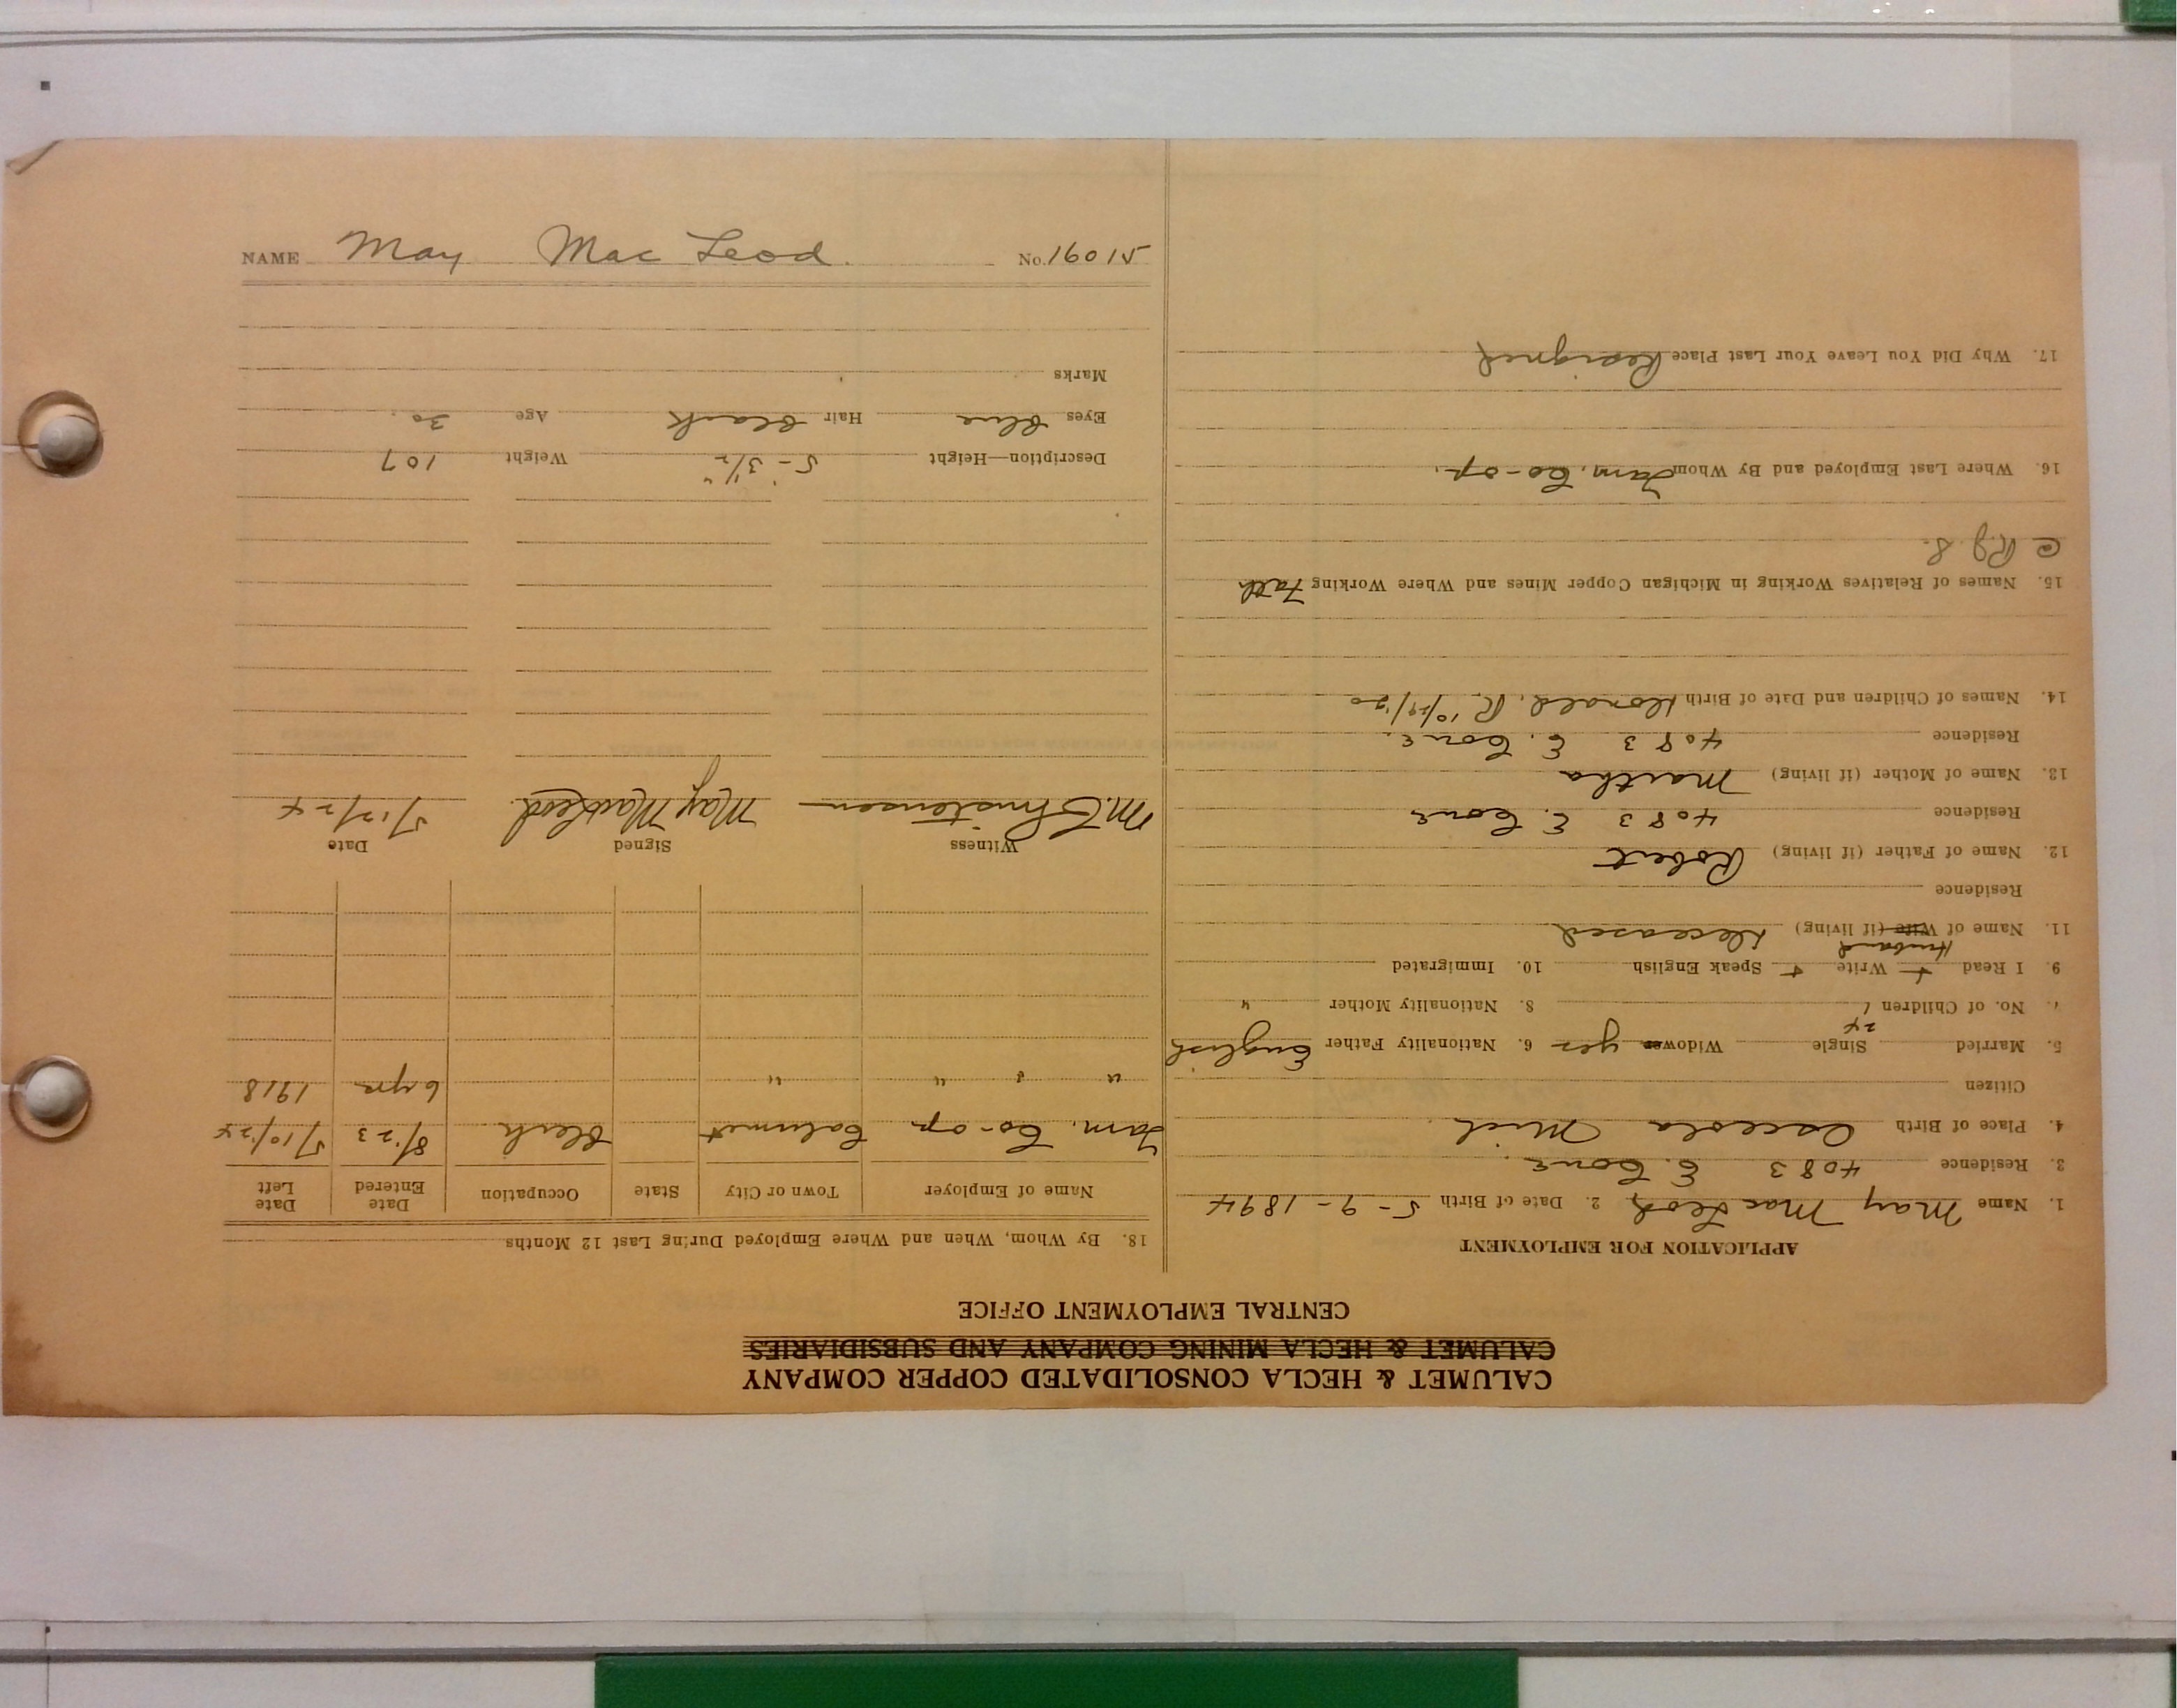 CALUMET & HECLA CONSOLIDATED COPPER COMPANY
CALUMET & HECLA MINING COMPANY AND SUBSIDIARIES
CENTRAL EMPLOYMENT OFFICE
APPLICATION FOR EMPLOYMENT
1. Name May Mac Leod 2. Date of Birth 5-9-1894
3. Residence 4083 E. Cone
4. Place of Birth Osceola Mich
Citizen
5. Married Single Widower yes 6. Nationality Father English
24
7. No. of Children 1 8. Nationality Mother "
9. I Read + Write + Speak English 10. Immigrated
Husband
11. Name of Wife (if living) Deceased
Residence
12. Name of Father (if living) Robert
Residence 4083 E. Cone
13. Name of Mother (if living) Martha
Residence 4083 E. Cone.
14. Names of Children and Date of Birth Donald, R. 10/29/20
15. Names of Relatives Working in Michigan Copper Mines and Where Working Fath
@ R.J.S.
16. Where Last Employed and By Whom Tam. Co-op.
17. Why Did You Leave Your Last Place Resigned
18. By Whom, When and Where Employed During Last 12 Months
Name of Employer Town or City State Occupation Date Entered Date Left
Tam. Co-op Calumet Clerk 8/'23 5/10/24
" " " " 6 yrs 1918
Witness Signed Date
M. Christensen May MacLeod. 5/12/24
Description—Height 5-3 1/2" Weight 107
Eyes blue Hair black Age 30.
Marks
NAME May Mac Leod. No. 16015